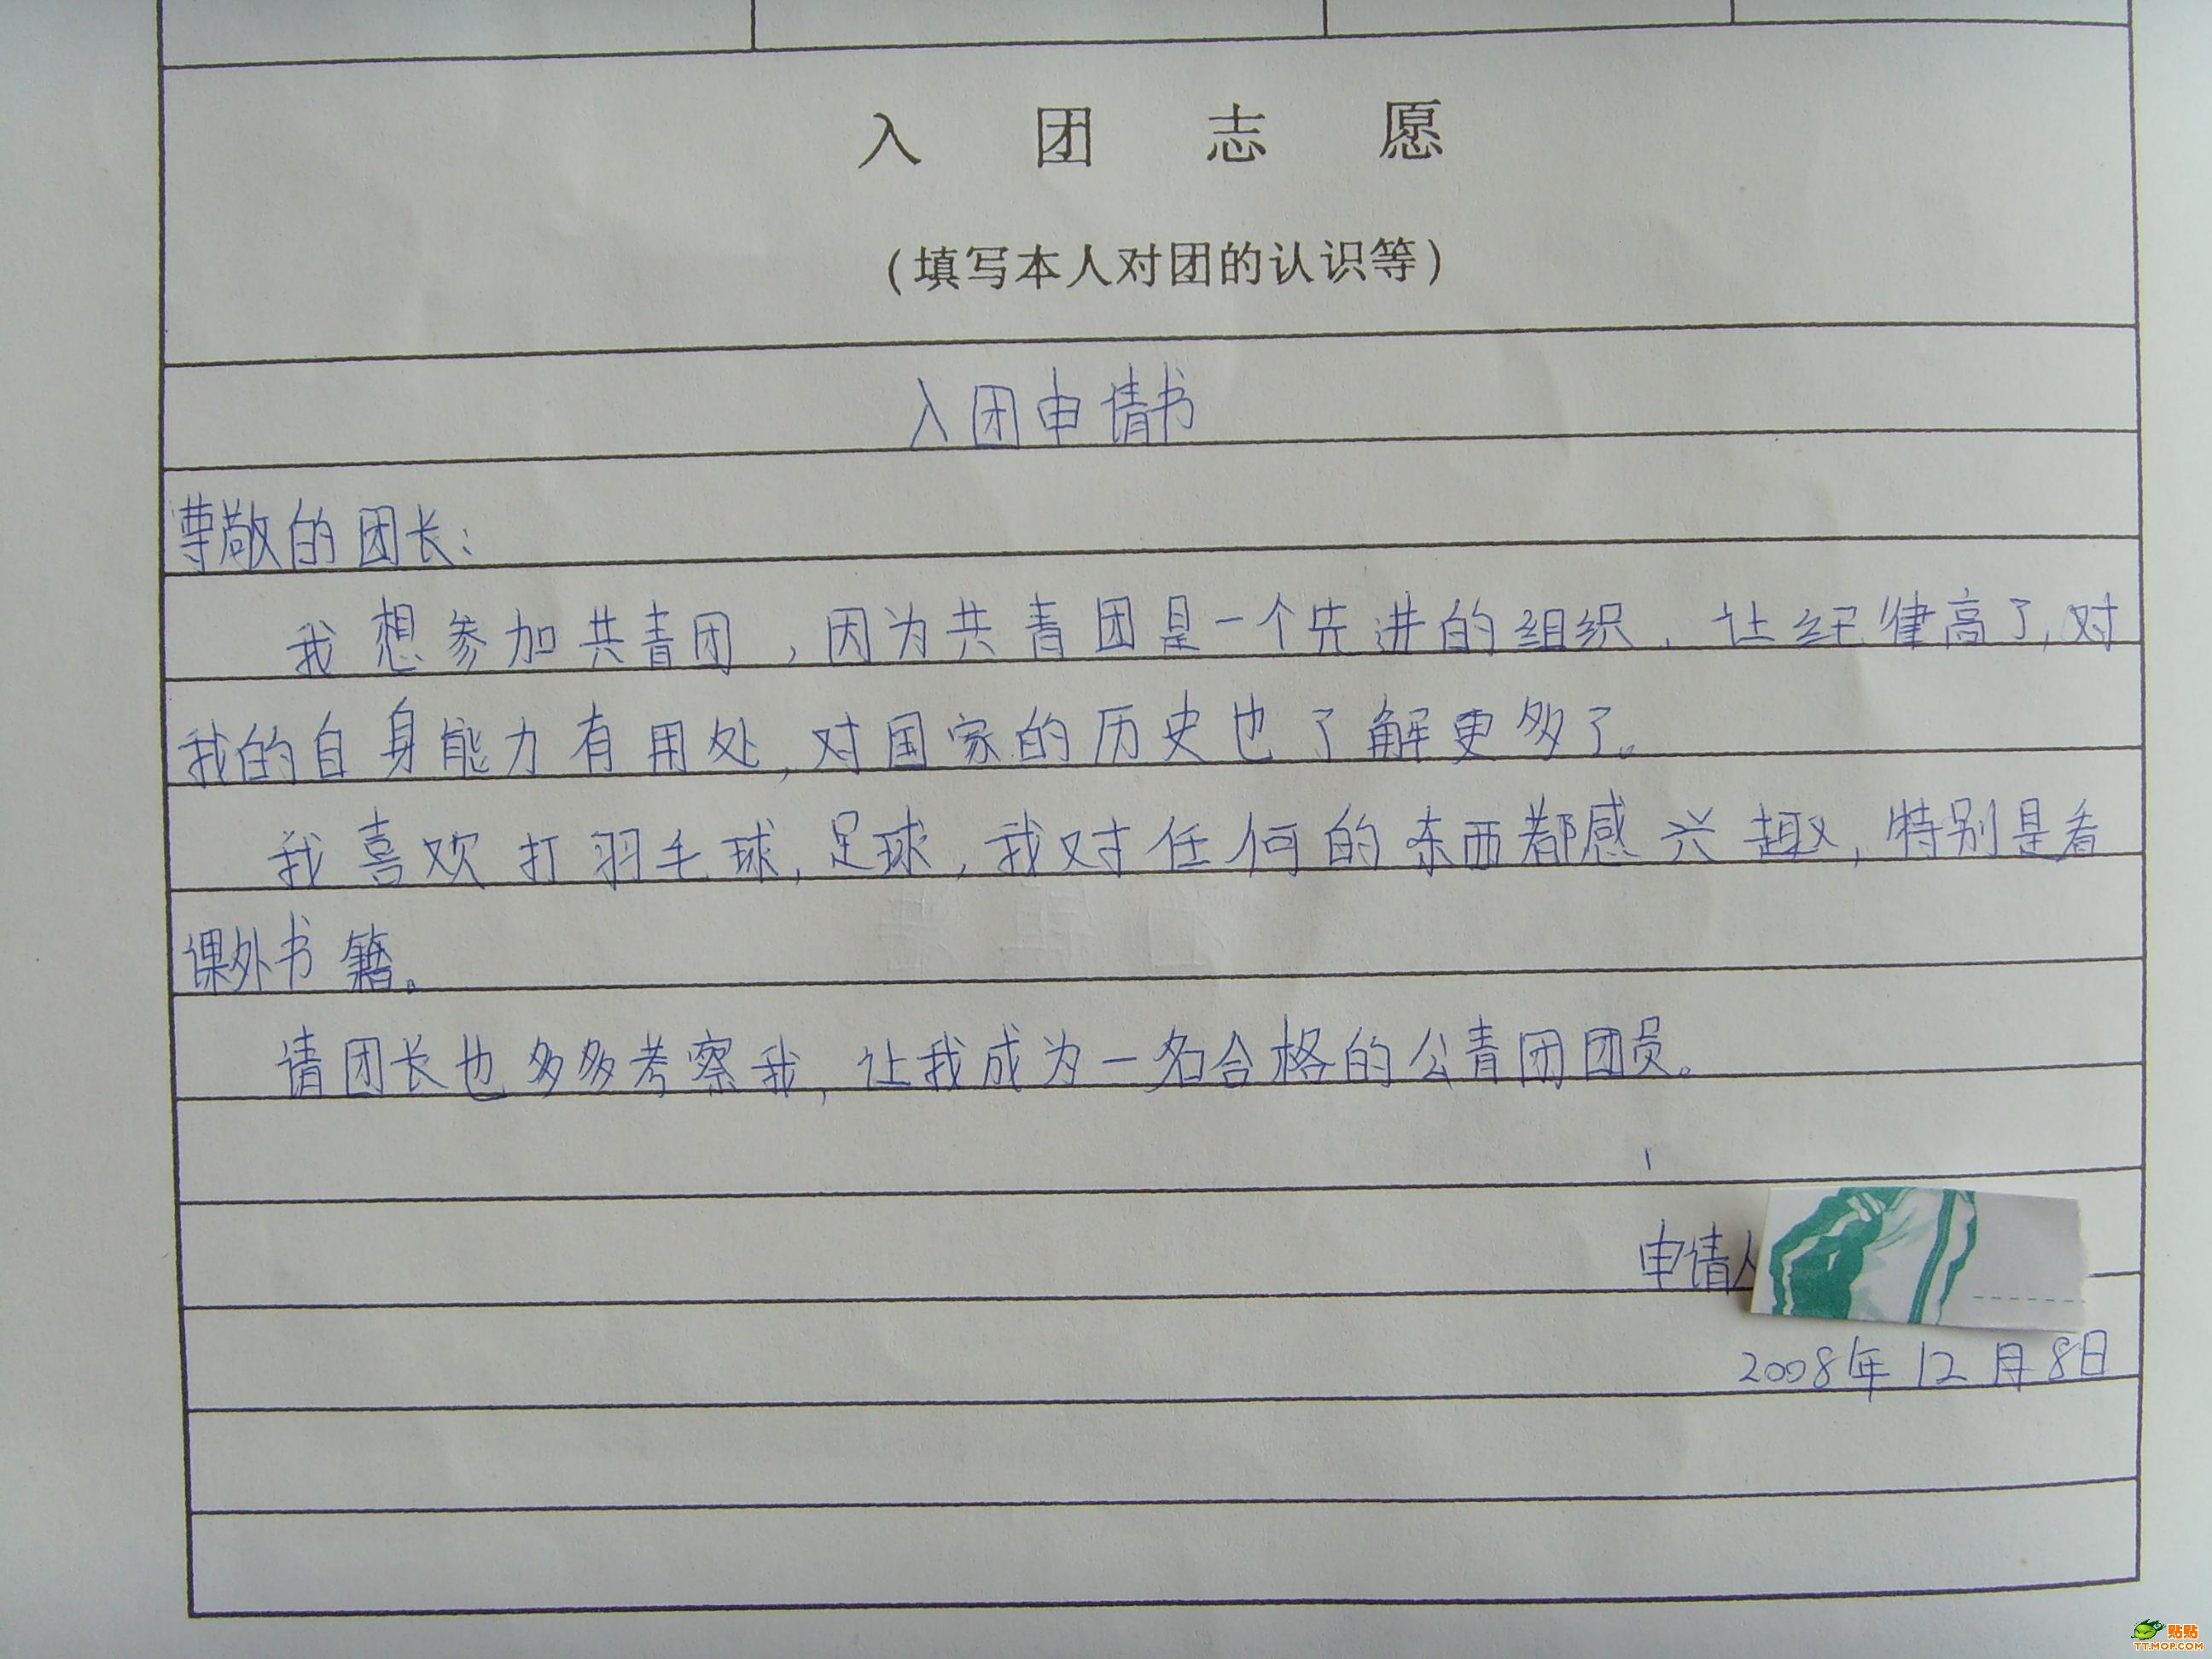 入团志愿
(填写本人对团的认识等)
入团申请书
尊敬的团长:
我想参加共青团,因为共青团是一个先进的组织,让纪律高了,对
我的自身能力有用处,对国家的历史也了解更多了。
我喜欢打羽毛球,足球,我对任何的东西都感兴趣,特别是看
课外书籍。
请团长也多多考察我,让我成为一名合格的公青团团员。
申请人
2008年12月8日
贴贴
TT.MOP.COM